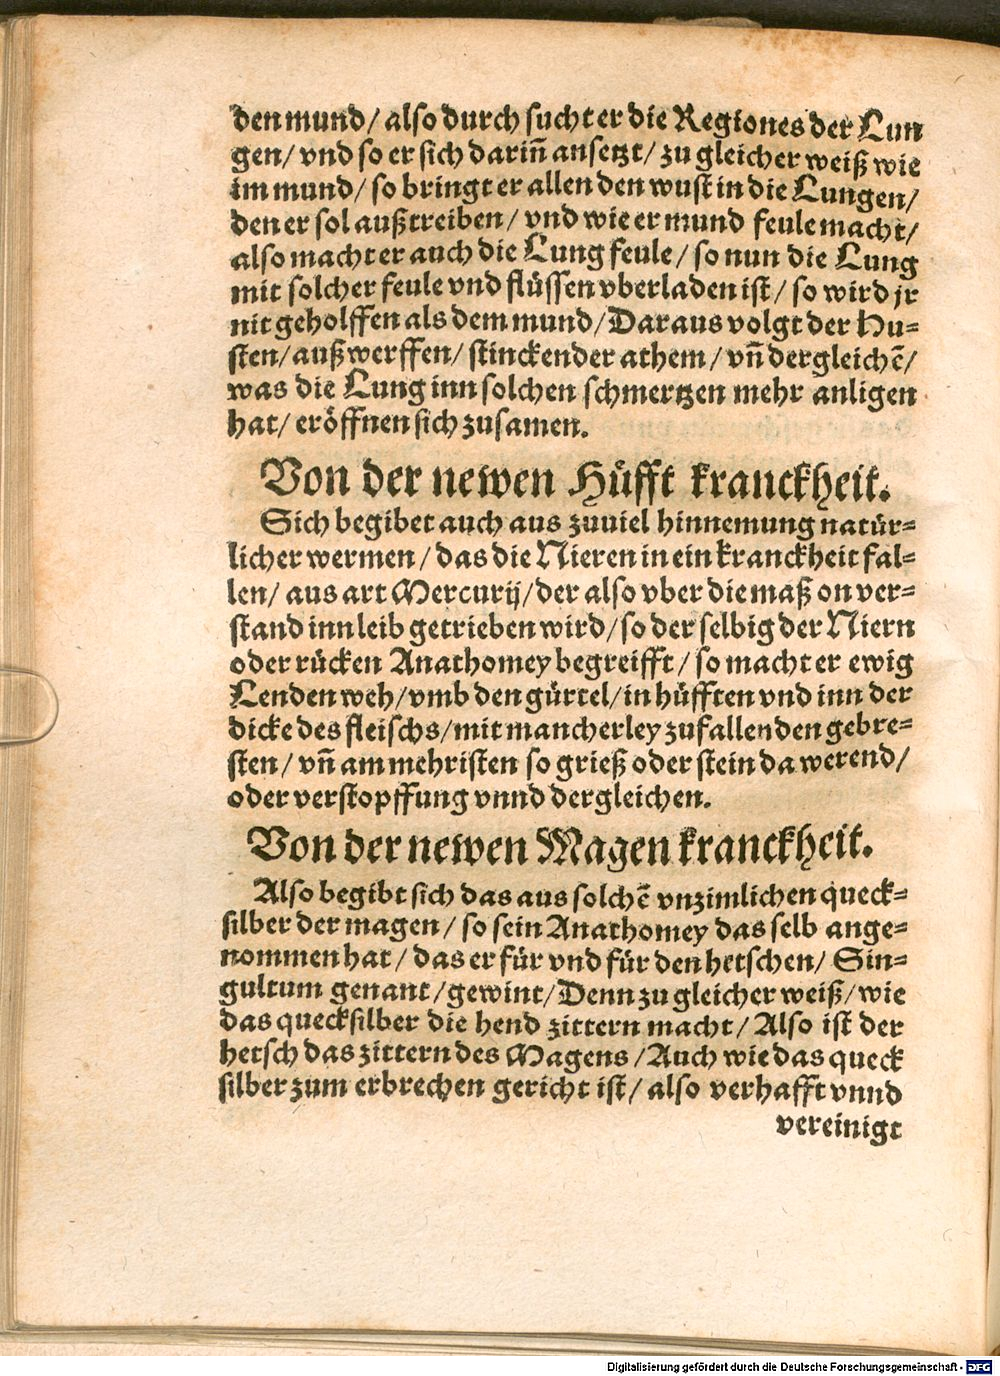 den mund/ also durch sucht er die Regiones der Lun
gen/ vnd so er sich dariñ ansetzt/ zu gleicher weiß wie
im mund/ so bringt er allen den wust in die Lungen/
den er sol außtreiben/ vnd wie er mund feule macht/
also macht er auch die Lung feule/ so nun die Lung
mit solcher feule vnd flüssen vberladen ist/ so wird jr
nit geholffen als dem mund/ Daraus volgt der Hu-
sten/ außwerffen/ stinckender athem/ vñ dergleichẽ/
was die Lung inn solchen schmertzen mehr anligen
hat/ eröffnen sich zusamen.
Von der newen Hüfft kranckheit.
Sich begibet auch aus zuuiel hinnemung natür-
licher wermen/ das die Nieren in ein kranckheit fal-
len/ aus art Mercurij/ der also vber die maß on ver-
stand inn leib getrieben wird/ so der selbig der Niern
oder rücken Anathomey begreifft/ so macht er ewig
Lenden weh/ vmb den gürtel/ in hüfften vnd inn der
dicke des fleischs/ mit mancherley zufallenden gebre-
sten/ vñ am mehristen so grieß oder stein da werend/
oder verstopffung vnnd dergleichen.
Von der newen Magen kranckheit.
Also begibt sich das aus solchẽ vnzimlichen queck-
silber der magen/ so sein Anathomey das selb ange-
nommen hat/ das er für vnd für den hetschen/ Sin-
gultum genant/ gewint/ Denn zu gleicher weiß/ wie
das quecksilber die hend zittern macht/ Also ist der
hetsch das zittern des Magens/ Auch wie das queck
silber zum erbrechen gericht ist/ also verhafft vnnd
vereinigt
Digitalisierung gefördert durch die Deutsche Forschungsgemeinschaft - DFG